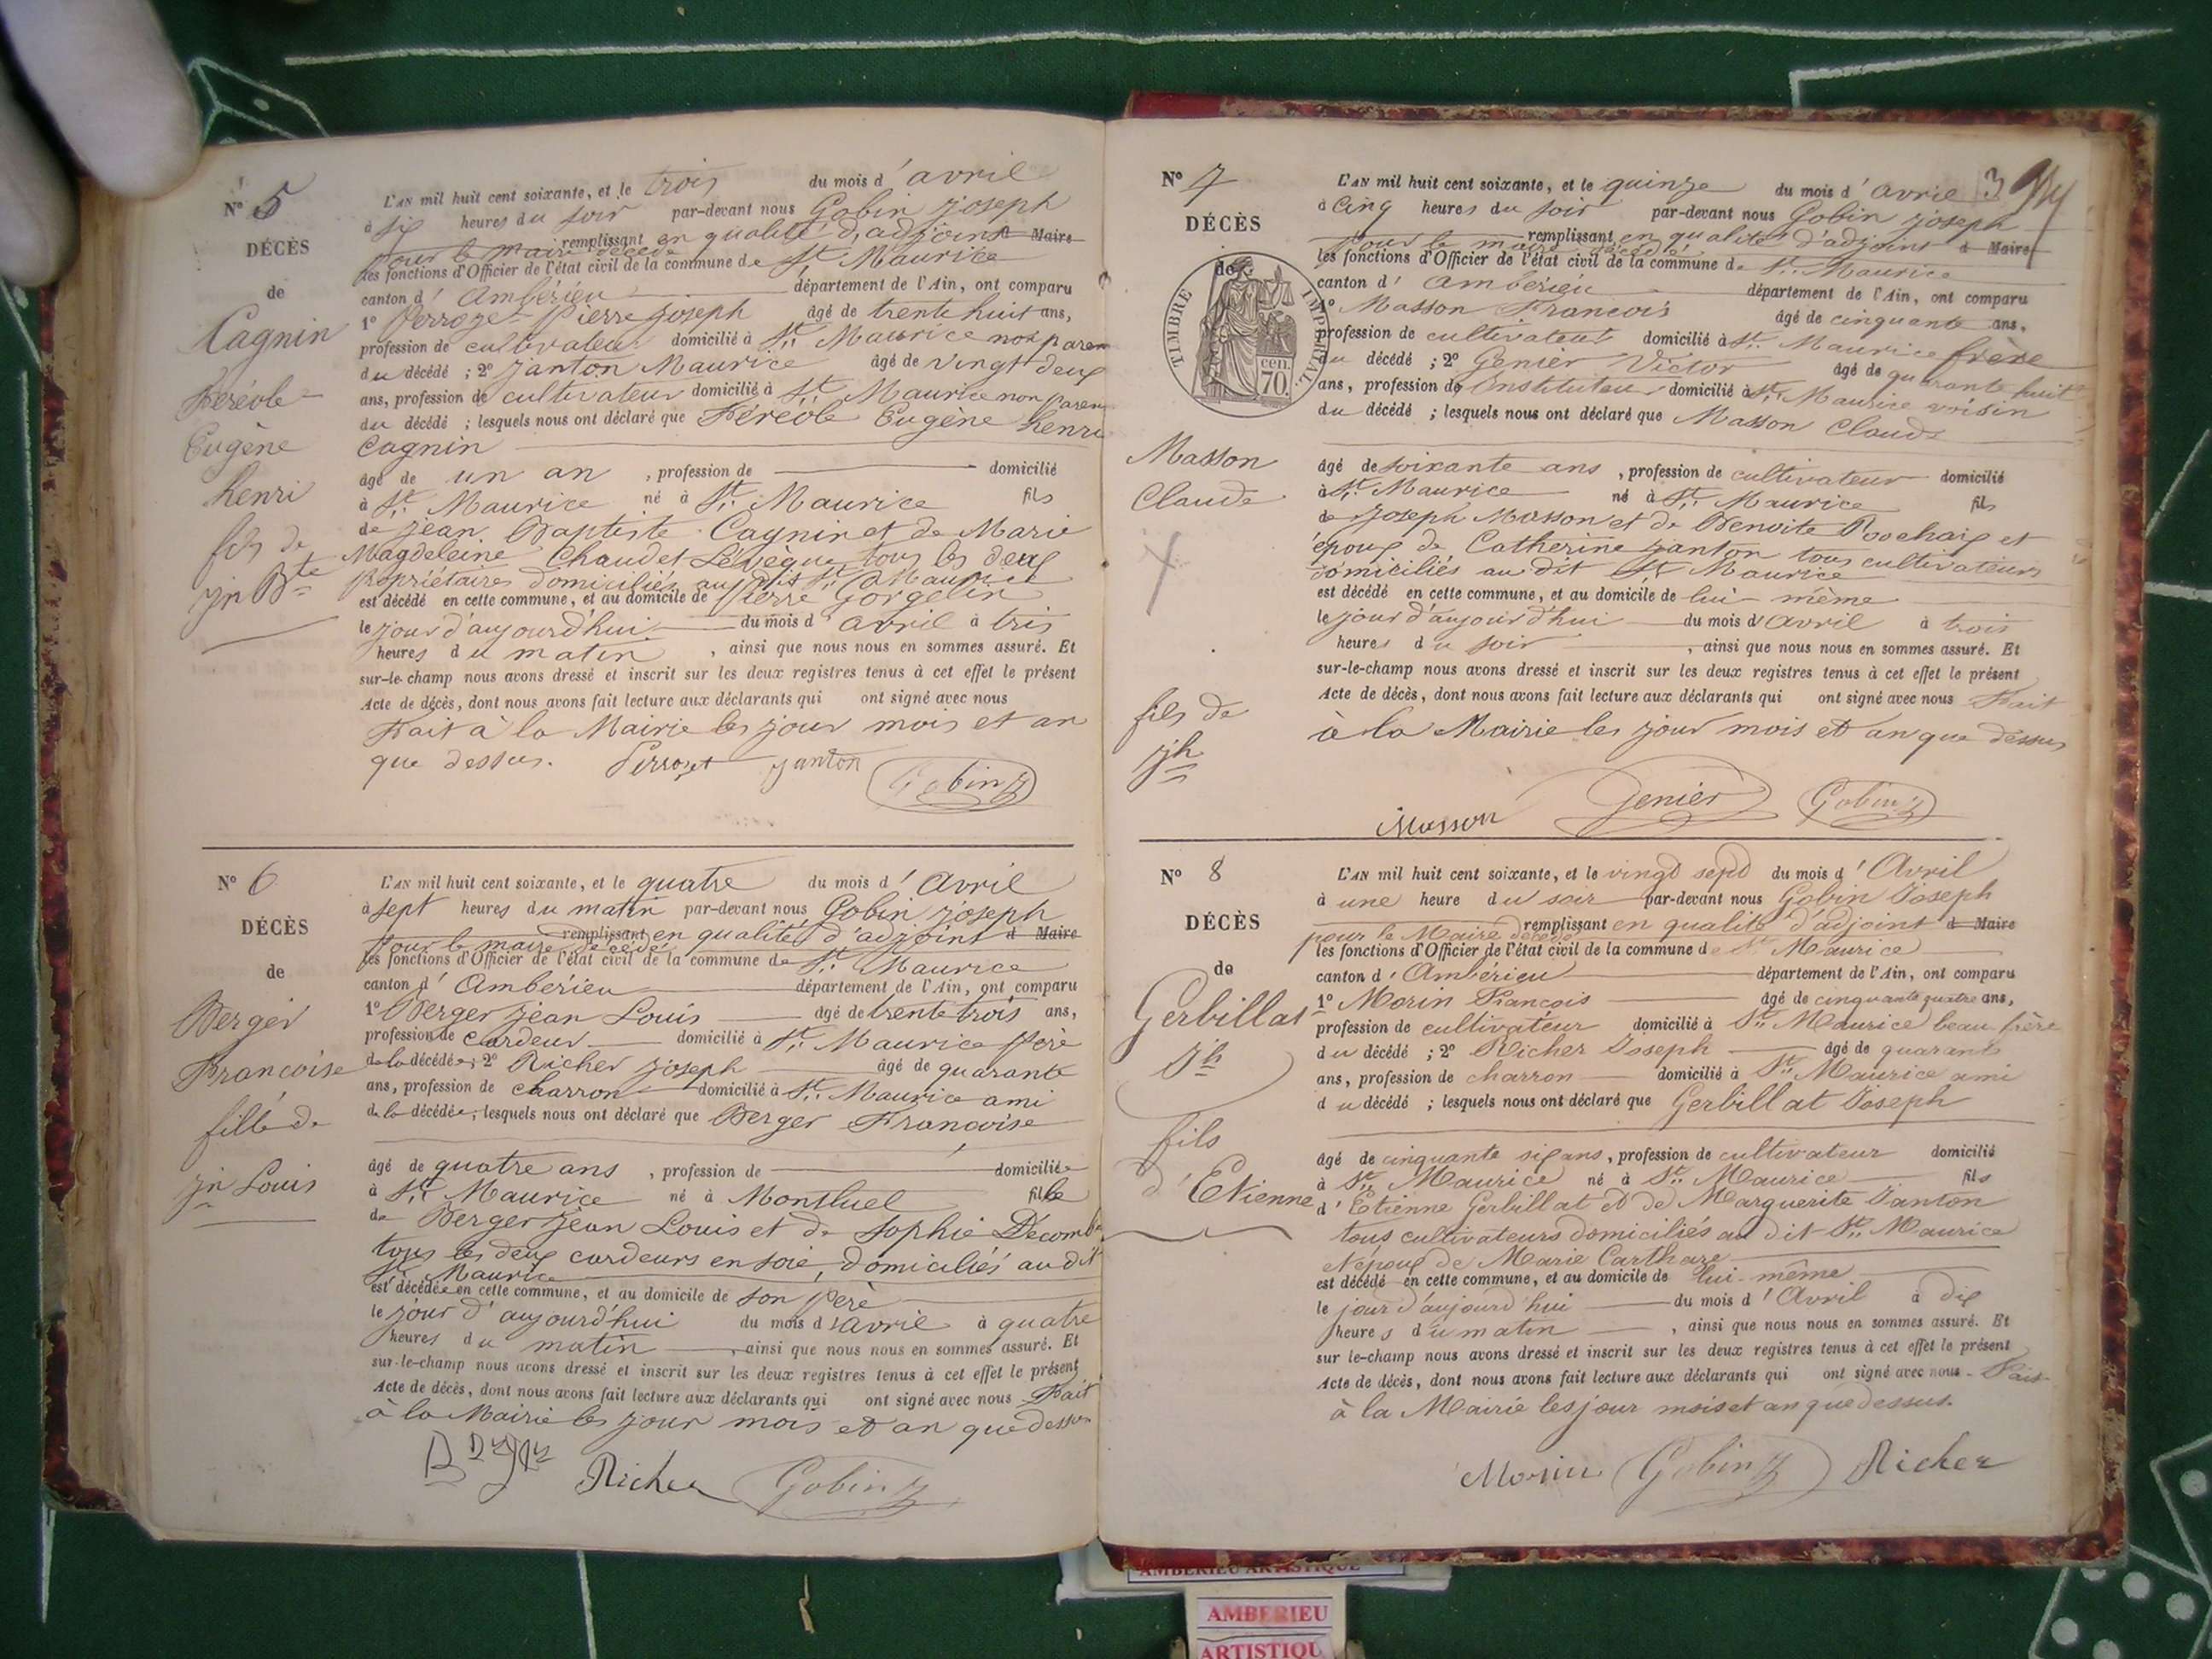 N° 5
DÉCÈS
de
Cagnin
Féréole
Eugène
henri
fils de
jn Bte
L'AN mil huit cent soixante, et le trois du mois d'avril
à six heures du soir par-devant nous Gobin joseph
remplissant en qualité d'adjoint Maire
pour le maire décédé
les fonctions d'Officier de l'état civil de la commune de St. Maurice
canton d'Ambérieu département de l'Ain, ont comparu
1° Perrozet Pierre joseph âgé de trente huit ans,
profession de cultivateur domicilié à St. Maurice non paren
du décédé ; 2° janton Maurice âgé de vingt deux
ans, profession de cultivateur domicilié à St. Maurice non paren
du décédé ; lesquels nous ont déclaré que Féréole Eugène henri
Cagnin
âgé de un an , profession de domicilié
à St. Maurice né à St. Maurice fils
de jean Baptiste Cagnin et de Marie
Magdeleine Chaudet Lévèque tous les deux
propriétaires domiciliés au dit St. Maurice
est décédé en cette commune, et au domicile de Pierre Gorgelin
le jour d'aujourd'hui du mois d'avril à tris
heures du matin , ainsi que nous nous en sommes assuré. Et
sur-le-champ nous avons dressé et inscrit sur les deux registres tenus à cet effet le présent
Acte de décès, dont nous avons fait lecture aux déclarants qui ont signé avec nous
Fait à la Mairie les jour mois et an
que dessus. Perrozet janton Gobin j
N° 6
DÉCÈS
de
Berger
Francoise
fille de
jn Louis
L'AN mil huit cent soixante, et le quatre du mois d'Avril
à sept heures du matin par-devant nous Gobin joseph
remplissant en qualité d'adjoint d Maire
pour le maire décédé
les fonctions d'Officier de l'état civil de la commune de St. Maurice
canton d'Ambérieu département de l'Ain, ont comparu
1° Berger jean Louis âgé de trente trois ans,
profession de cardeur domicilié à St. Maurice père
de la décédée ; 2° Richer joseph âgé de quarante
ans, profession de charron domicilié à St. Maurice ami
de la décédée ; lesquels nous ont déclaré que Berger Francoise
âgé de quatre ans , profession de domiciliée
à St. Maurice né à Montluel fille
de Berger jean Louis et de Sophie Décomb
tous les deux cardeurs en soie, domiciliés au dit
St. Maurice
est décédée en cette commune, et au domicile de son père
le jour d'aujourd'hui du mois d'avril à quatre
heures du matin , ainsi que nous nous en sommes assuré. Et
sur-le-champ nous avons dressé et inscrit sur les deux registres tenus à cet effet le présent
Acte de décès, dont nous avons fait lecture aux déclarants qui ont signé avec nous Fait
à la Mairie les jour mois et an que dessus
Richer Gobin j
N° 7
DÉCÈS
de
TIMBRE IMPERIAL
cen.
70.
Masson
Claude
fils de
jh
3
L'AN mil huit cent soixante, et le quinze du mois d'avril
à cinq heures du soir par-devant nous Gobin joseph
remplissant en qualité d'adjoint d Maire
pour le maire décédé
les fonctions d'Officier de l'état civil de la commune de St. Maurice
canton d'Ambérieu département de l'Ain, ont comparu
1° Masson Francois âgé de cinquante ans,
profession de cultivateur domicilié à St. Maurice frère
du décédé ; 2° Genier Victor âgé de quarante huit
ans, profession de Instituteur domicilié à St. Maurice voisin
du décédé ; lesquels nous ont déclaré que Masson Claude
âgé de soixante ans , profession de cultivateur domicilié
à St. Maurice né à St. Maurice fils
de Joseph Masson et de Benoite
époux de Catherine janton tous cultivateurs
domiciliés au dit St Maurice
est décédé en cette commune, et au domicile de lui-même
le jour d'aujourd'hui du mois d'Avril à trois
heures du soir , ainsi que nous nous en sommes assuré. Et
sur-le-champ nous avons dressé et inscrit sur les deux registres tenus à cet effet le présent
Acte de décès, dont nous avons fait lecture aux déclarants qui ont signé avec nous Fait
à la Mairie les jour mois et an que dessus
Masson Genier Gobin j
N° 8
DÉCÈS
de
Gerbillat
Jh
fils
d'Etienne
L'AN mil huit cent soixante, et le vingt sept du mois d'Avril
à une heure du soir par-devant nous Gobin Joseph
remplissant en qualité d'adjoint d Maire
pour le Maire décédé
les fonctions d'Officier de l'état civil de la commune de St Maurice
canton d'Ambérieu département de l'Ain, ont comparu
1° Morin François âgé de cinquante quatre ans,
profession de cultivateur domicilié à St. Maurice beau frère
du décédé ; 2° Richer Joseph âgé de quarante
ans, profession de charron domicilié à St. Maurice ami
du décédé ; lesquels nous ont déclaré que Gerbillat Joseph
âgé de cinquante six ans, profession de cultivateur domicilié
à St. Maurice né à St. Maurice fils
d'Etienne Gerbillat et de Marguerite Janton
tous cultivateurs domiciliés au dit St. Maurice
et époux de Marie Carthaze
est décédé en cette commune, et au domicile de lui-même
le jour d'aujourd'hui du mois d'Avril à dix
heures du matin , ainsi que nous nous en sommes assuré. Et
sur le-champ nous avons dressé et inscrit sur les deux registres tenus à cet effet le présent
Acte de décès, dont nous avons fait lecture aux déclarants qui ont signé avec nous - Fait
à la Mairie les jour mois et an que dessus.
Morin Gobin j Richer
AMBERIEU ARTISTIQUE
AMBERIEU
ARTISTIQU